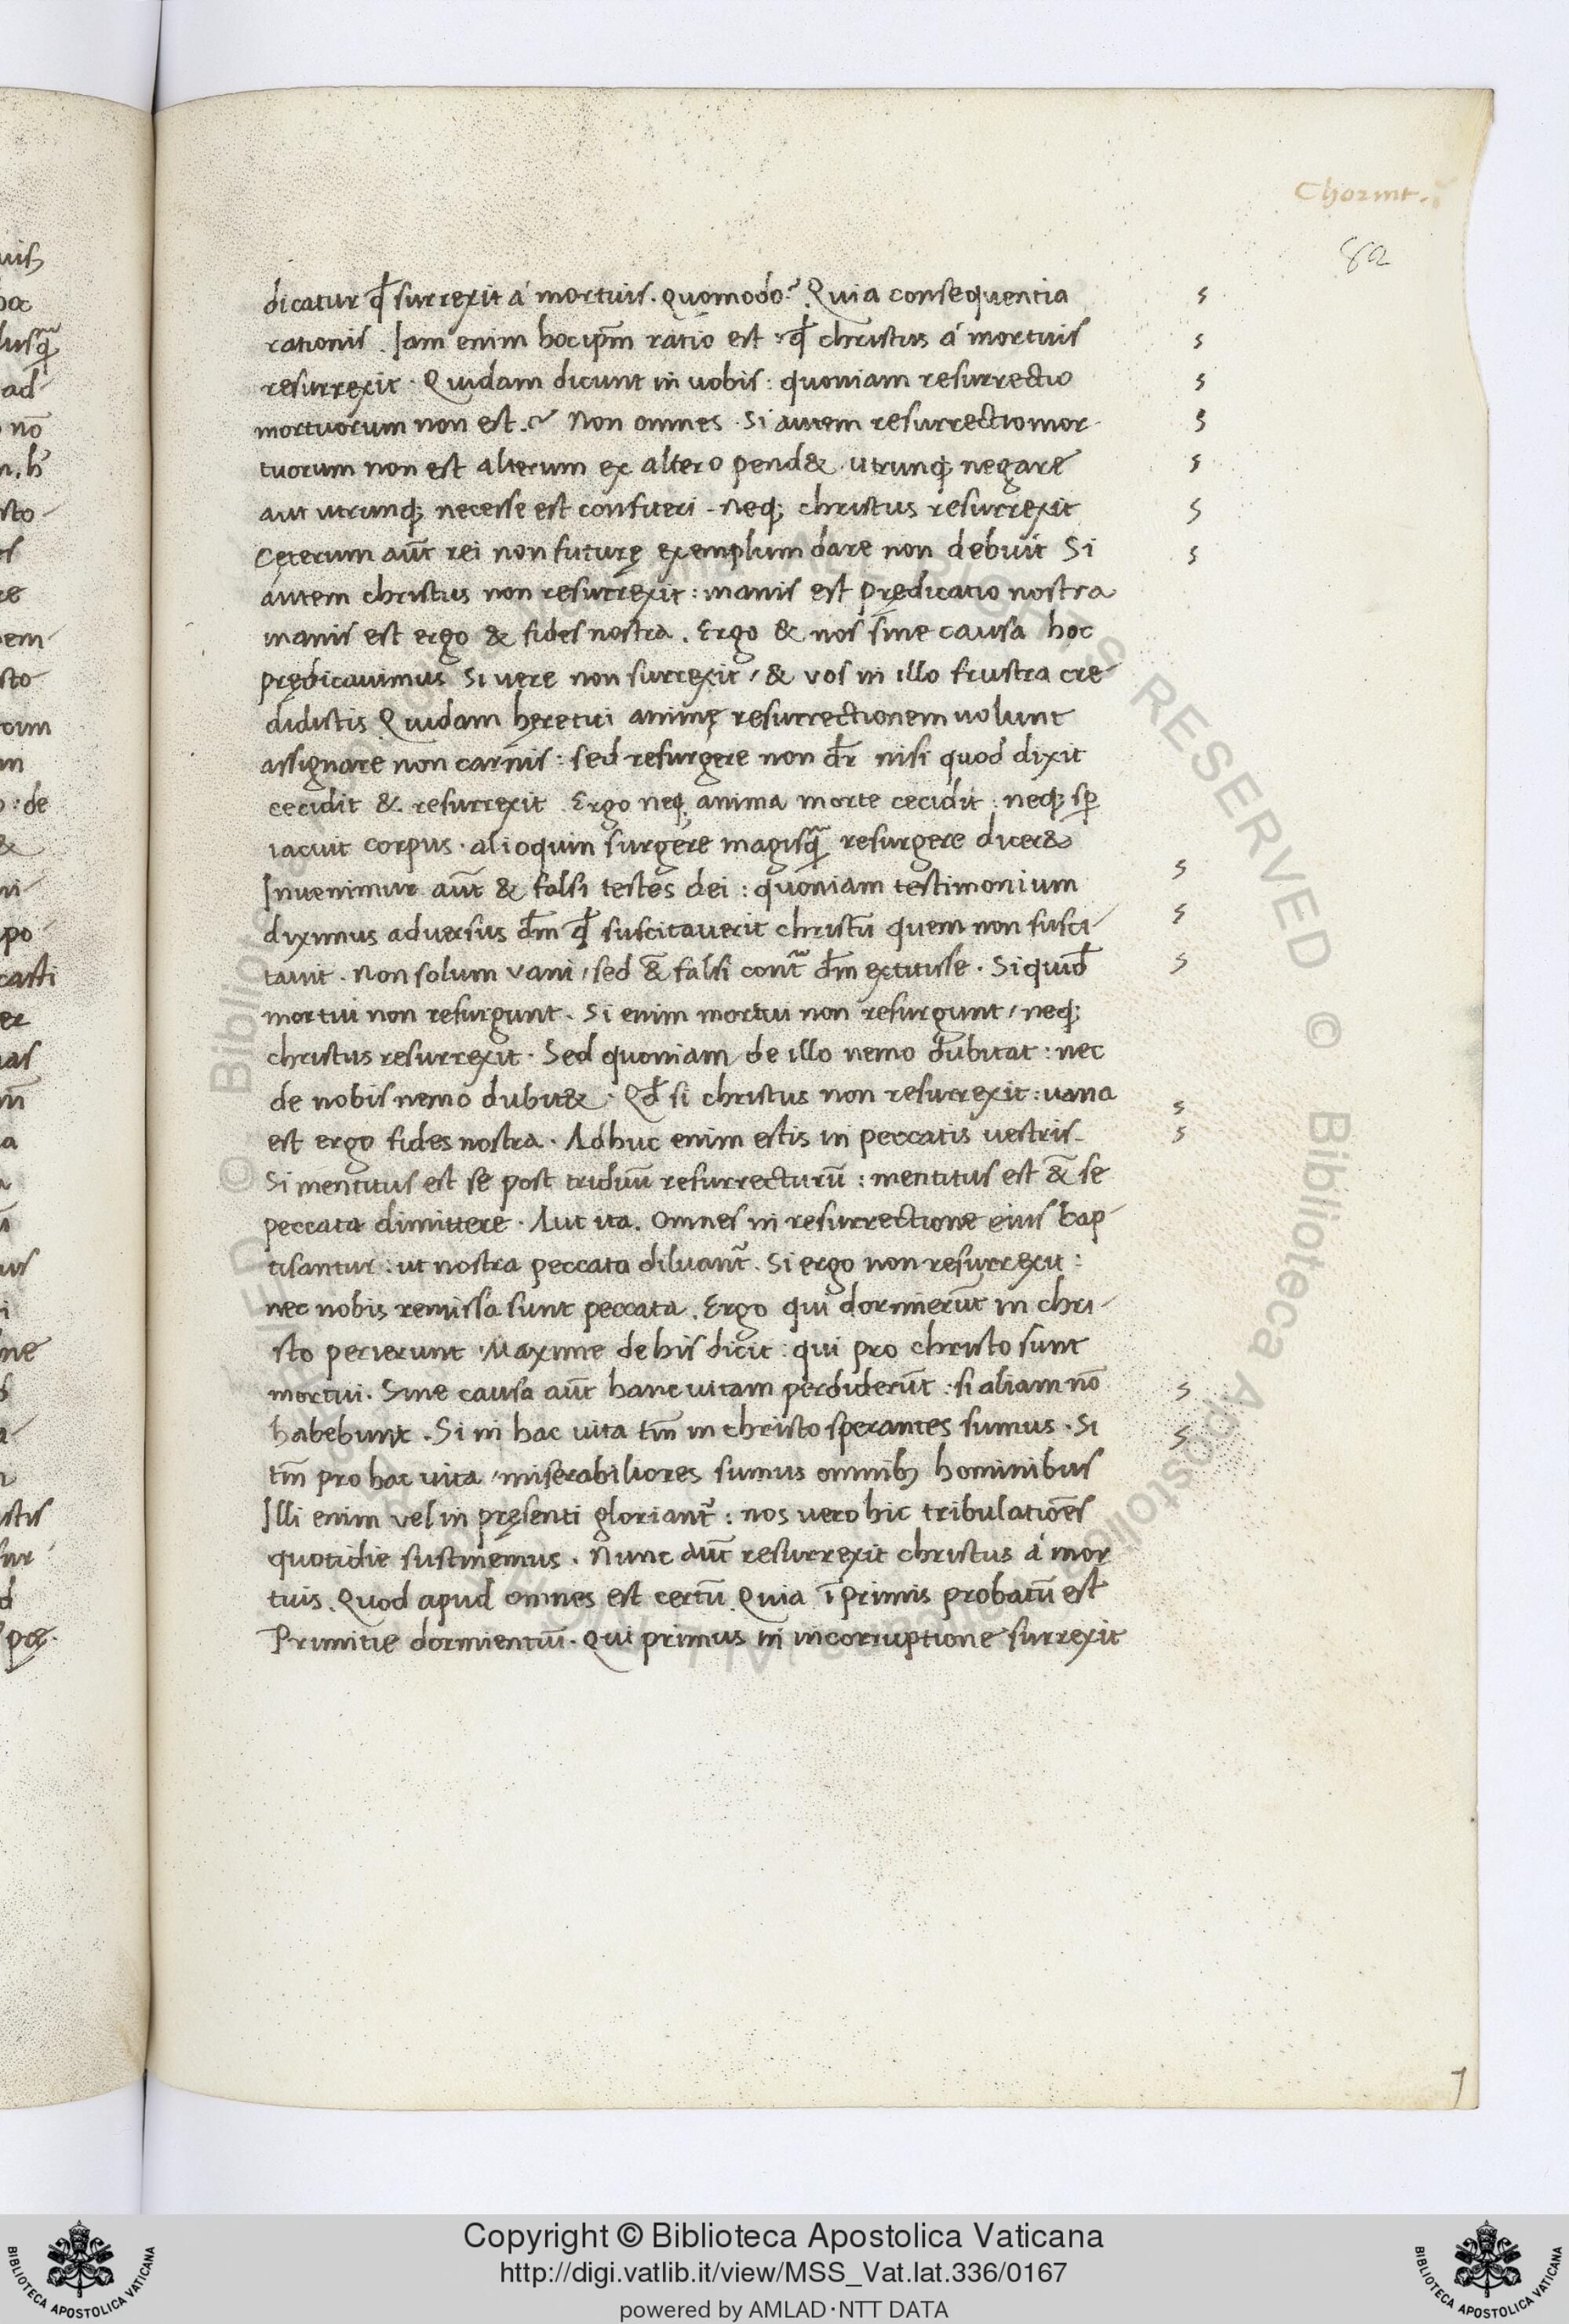 Chorint.
82
dicatur qđ surrexit á mortuis. Quomodo? Quia consequentia
rationis. Iam enim hoc ipm̄ ratio est: qđ christus á mortuis
resurrexit. Quidam dicunt in uobis: quoniam resurrectio
mortuorum non est.? Non omnes. Si autem resurrectio mor-
tuorum non est alterum ex altero pend&. utrunq; negare
aut utrunq; necesse est confiteri. Neq; christus resurrexit
Cęterum aūt rei non futurę exemplum dare non debuit Si
autem christus non resurrexit: inanis est prędicatio nostra
inanis est ergo & fides nostra. Ergo & nos sine causa hoc
prędicauimus Si vere non surrexit/ & vos in illo frustra cre-
didistis Quidam hęretici animę resurrectionem uolunt
assignare non carnis: sed resurgere non dr̄ nisi quod dixit
cecidit & resurrexit. Ergo neq; anima morte cecidit: neq; sp̄
iacuit corpus. alioquin surgere magisq̄ resurgere dicer&
Inuenimur aūt & falsi testes dei: quoniam testimonium
diximus adversus dm̄ qđ suscitauerit christū quem non susci-
tauit. Non solum vani/ sed &̄ falsi cont̄ dm̄ extitisse. Si quid̄
mortui non resurgunt. Si enim mortui non resurgunt/ neq;
christus resurrexit. Sed quoniam de illo nemo dubitat: nec
de nobis nemo dubit&. Qđ si christus non resurrexit: uana
est ergo fides nostra. Adhuc enim estis in peccatis uestris.
Si mentitus est se post triduū resurrecturū: mentitus est &̄ se
peccata dimittere. Aut ita. Omnes in resurrectione eius bap-
tisantur: ut nostra peccata diluant̄. Si ergo non resurrexit:
nec nobis remissa sunt peccata. Ergo qui dormierūt in chri-
sto perierunt. Maxime de his dicit: qui pro christo sunt
mortui. Sine causa aūt hanc uitam perdiderūt: si aliam nō
habebunt. Si in hac uita tm̄ in christo sperantes sumus. Si
tm̄ pro hac uita/ miserabiliores sumus omnib; hominibus
Illi enim vel in pręsenti gloriant̄: nos vero hic tribulatiōes
quotidie sustinemus. Nunc aūt resurrexit christus á mor
tuis. Quod apud omnes est certū. Quia ī primis probatū est
Primitie dormientiū. Qui primus in incorruptione surrexit
Copyright © Biblioteca Apostolica Vaticana
http://digi.vatlib.it/view/MSS_Vat.lat.336/0167
powered by AMLAD·NTT DATA